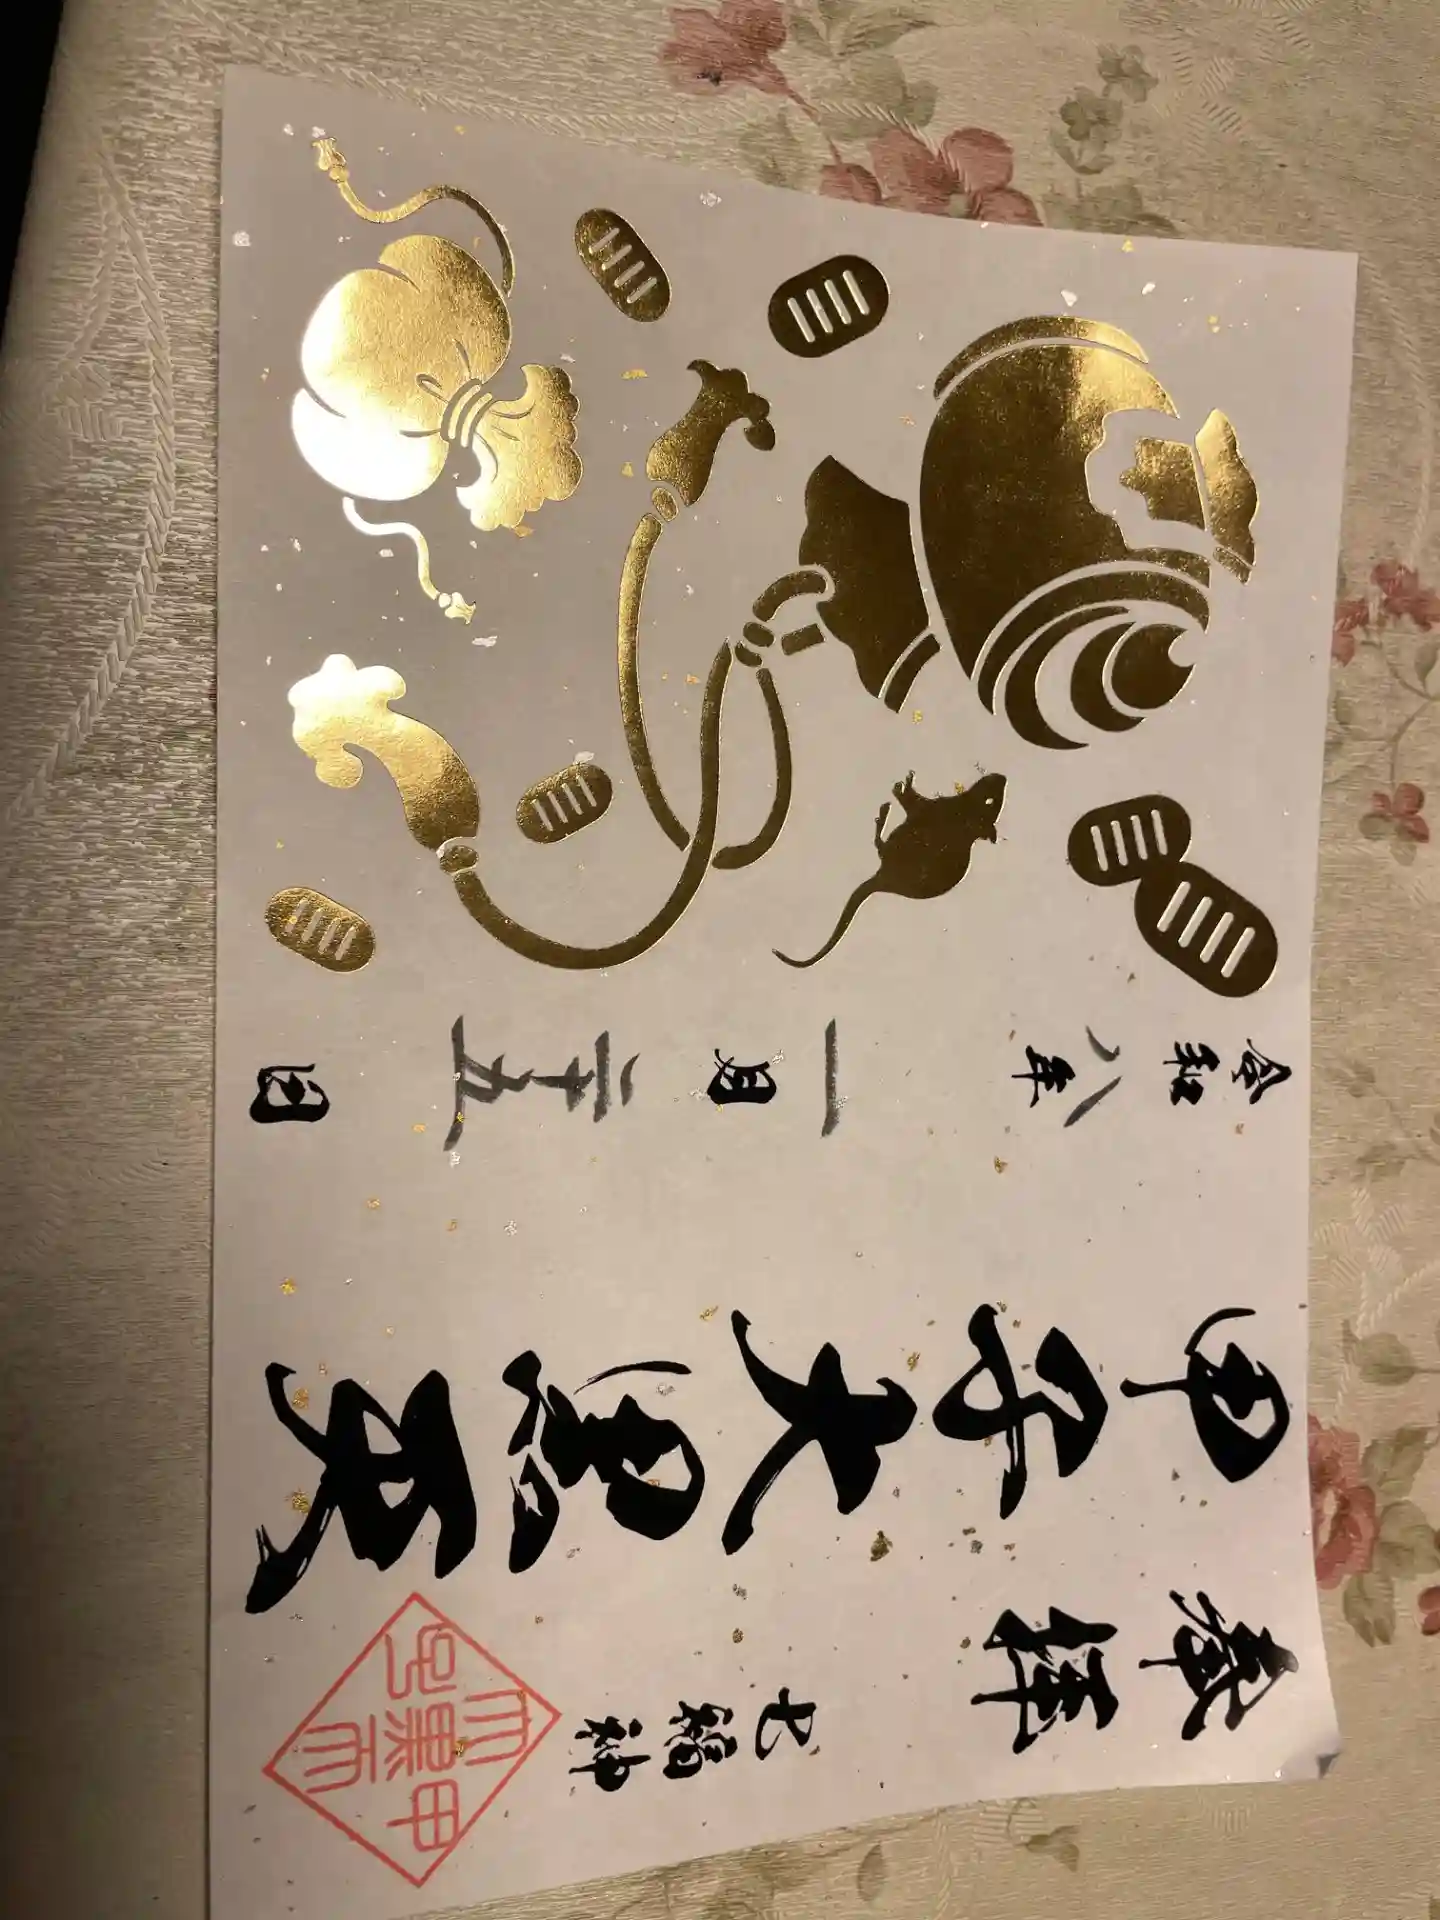 奉拝
七福神
甲子大黒天
令和八年一月二十五日